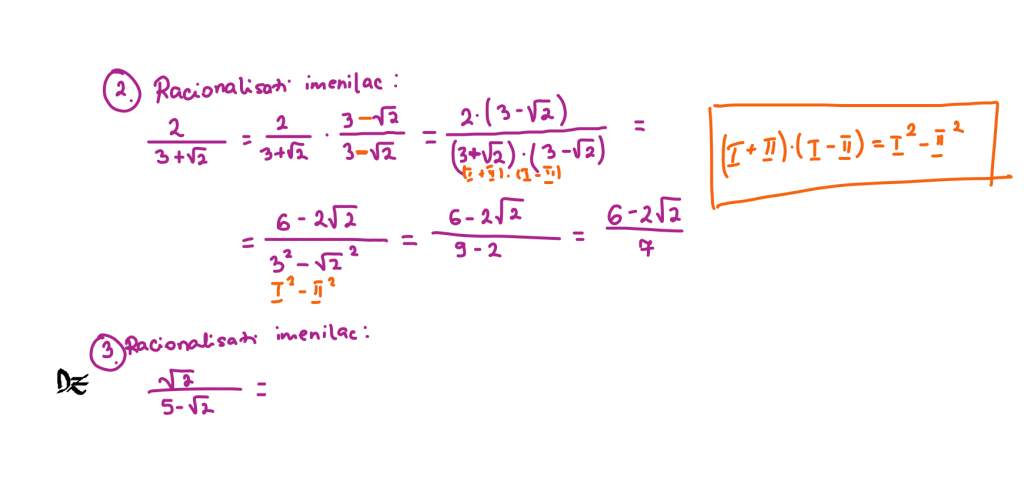 2. Racionalisati imenilac:
2/(3+√2) = 2/(3+√2) · (3-√2)/(3-√2) = 2·(3-√2)/((3+√2)·(3-√2)) =
(I+II)·(I-II)
(I+II)·(I-II) = I²-II²
= (6-2√2)/(3²-√2²) = (6-2√2)/(9-2) = (6-2√2)/7
I²-II²
3. Racionalisati imenilac:
DZ √2/(5-√2) =